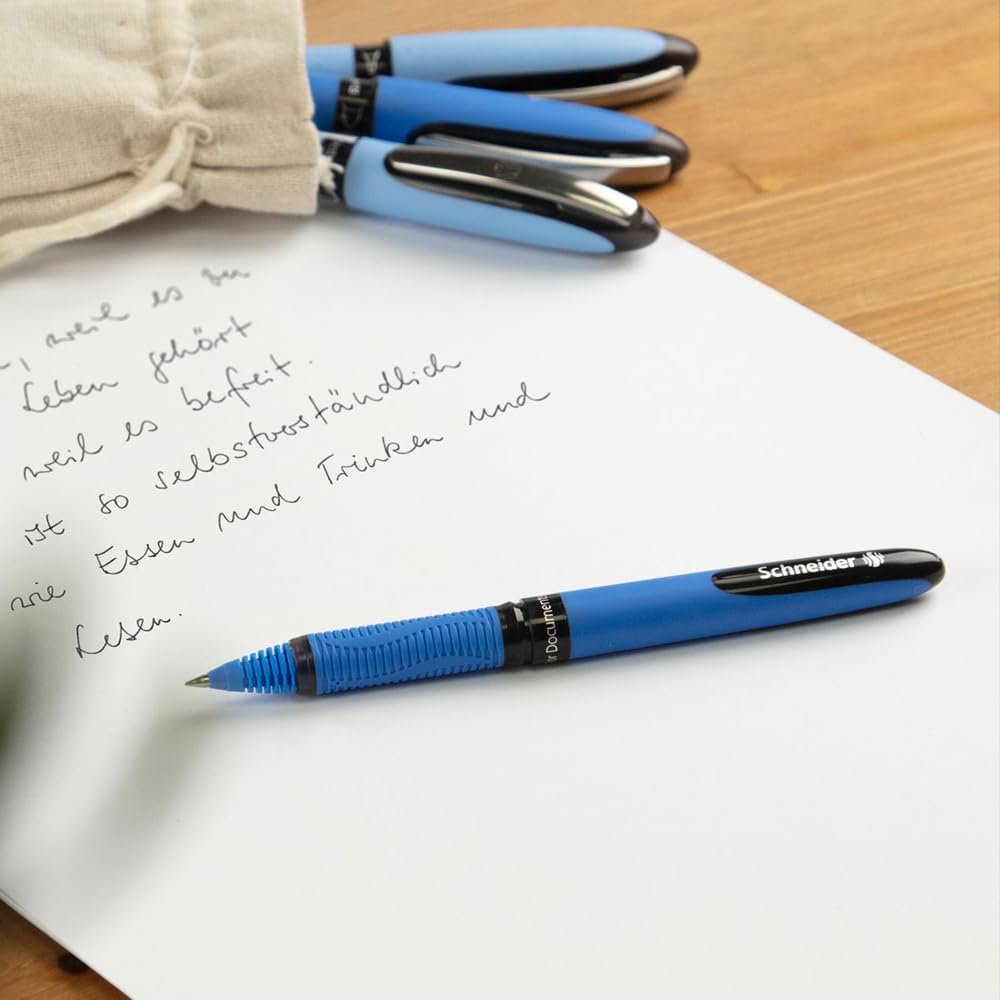 , weil es zu
Leben gehört
weil es befreit.
ist so selbstverständlich
wie Essen und Trinken und
Lesen.
Schneider
or Document